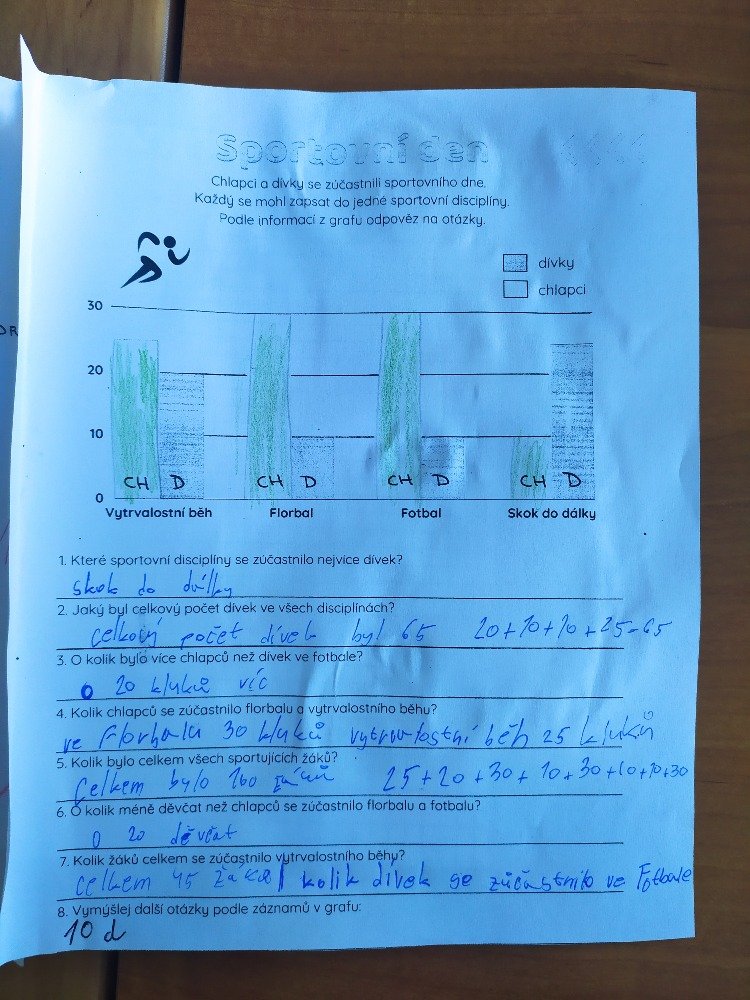 Sportovní den
Chlapci a dívky se zúčastnili sportovního dne.
Každý se mohl zapsat do jedné sportovní disciplíny.
Podle informací z grafu odpověz na otázky.
dívky
chlapci
30
20
10
0
CH D CH D CH D CH D
Vytrvalostní běh Florbal Fotbal Skok do dálky
1. Které sportovní disciplíny se zúčastnilo nejvíce dívek?
skok do dálky
2. Jaký byl celkový počet dívek ve všech disciplínách?
celkový počet dívek byl 65 20+10+10+25=65
3. O kolik bylo více chlapců než dívek ve fotbale?
o 20 kluků víc
4. Kolik chlapců se zúčastnilo florbalu a vytrvalostního běhu?
ve Florbalu 30 kluků vytrvalostní běh 25 kluků
5. Kolik bylo celkem všech sportujících žáků?
Celkem bylo 160 žáků 25+20+30+10+30+10+10+30
6. O kolik méně děvčat než chlapců se zúčastnilo florbalu a fotbalu?
O 20 děvčat
7. Kolik žáků celkem se zúčastnilo vytrvalostního běhu?
celkem 45 kolik dívek se zúčastnilo ve Fotbale
8. Vymýšlej další otázky podle záznamů v grafu:
10 d